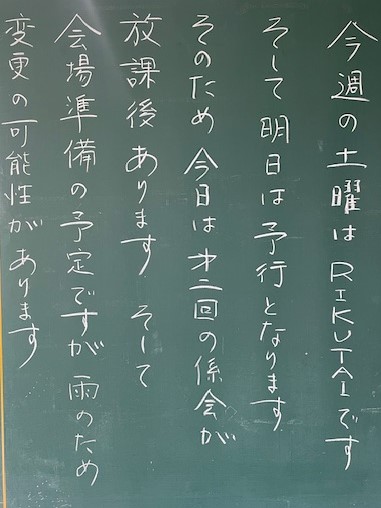 今週の土曜はRIKUTAIです
そして明日は予行となります
そのため今日は才二回の係会が
放課後あります そして
会場準備の予定ですが 雨のため
変更の可能性があります